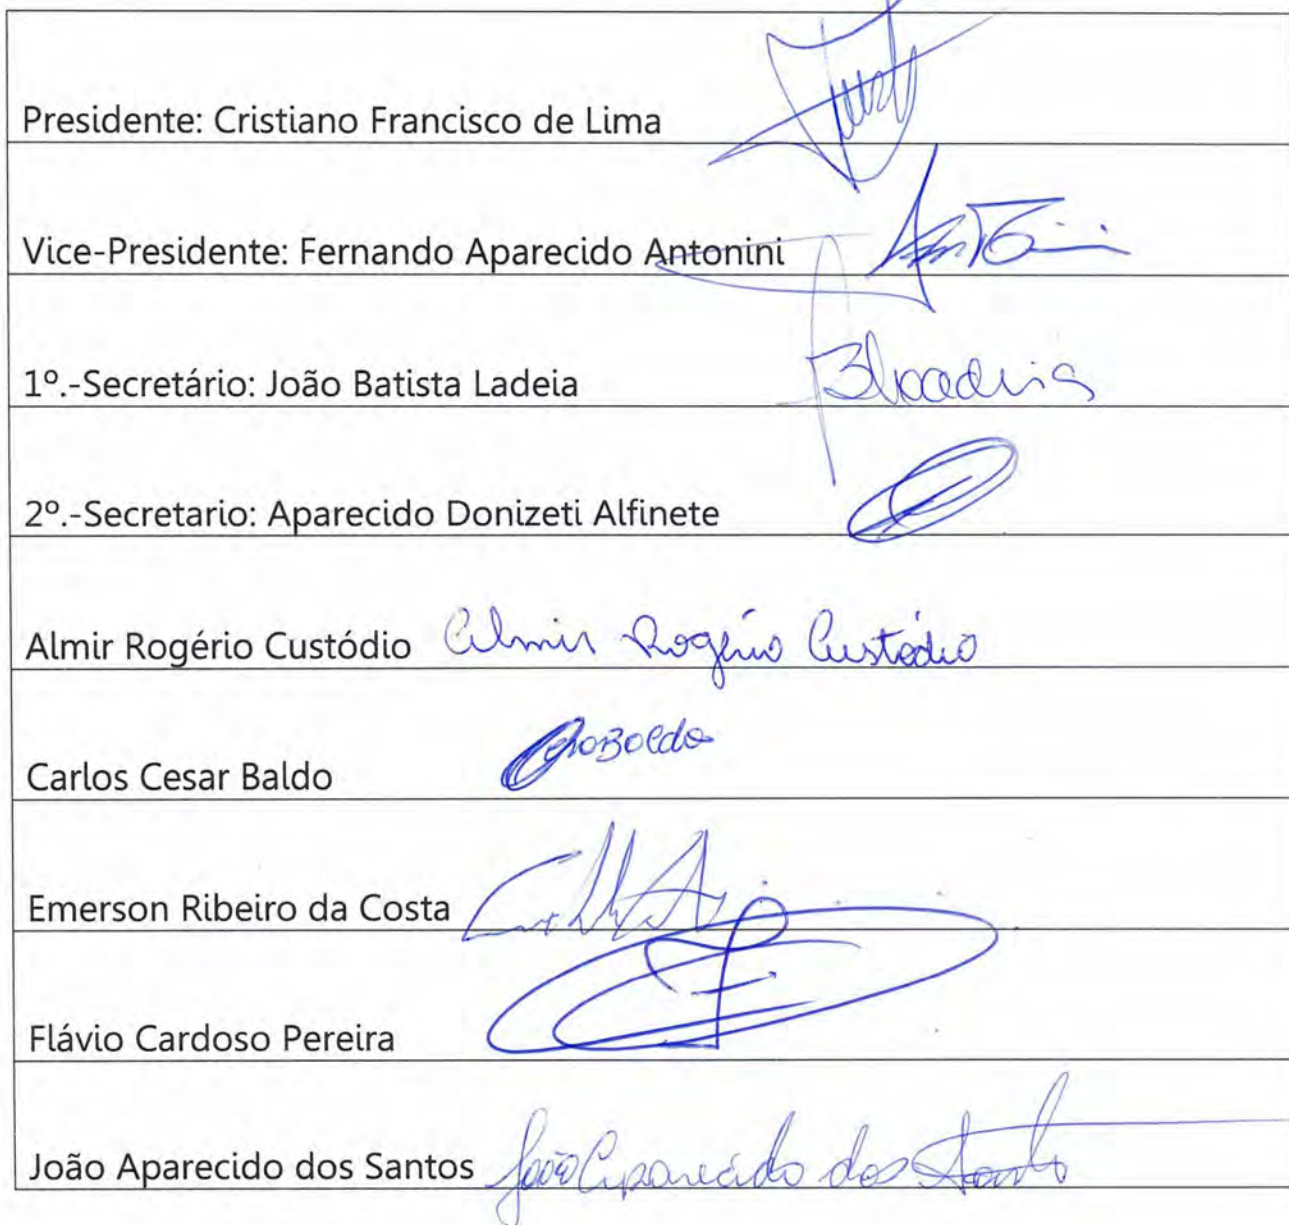 Presidente: Cristiano Francisco de Lima
Vice-Presidente: Fernando Aparecido Antonini
1º.-Secretário: João Batista Ladeia
2º.-Secretario: Aparecido Donizeti Alfinete
Almir Rogério Custódio Almir Rogério Custódio
Carlos Cesar Baldo
Emerson Ribeiro da Costa
Flávio Cardoso Pereira
João Aparecido dos Santos João Aparecido dos Santos